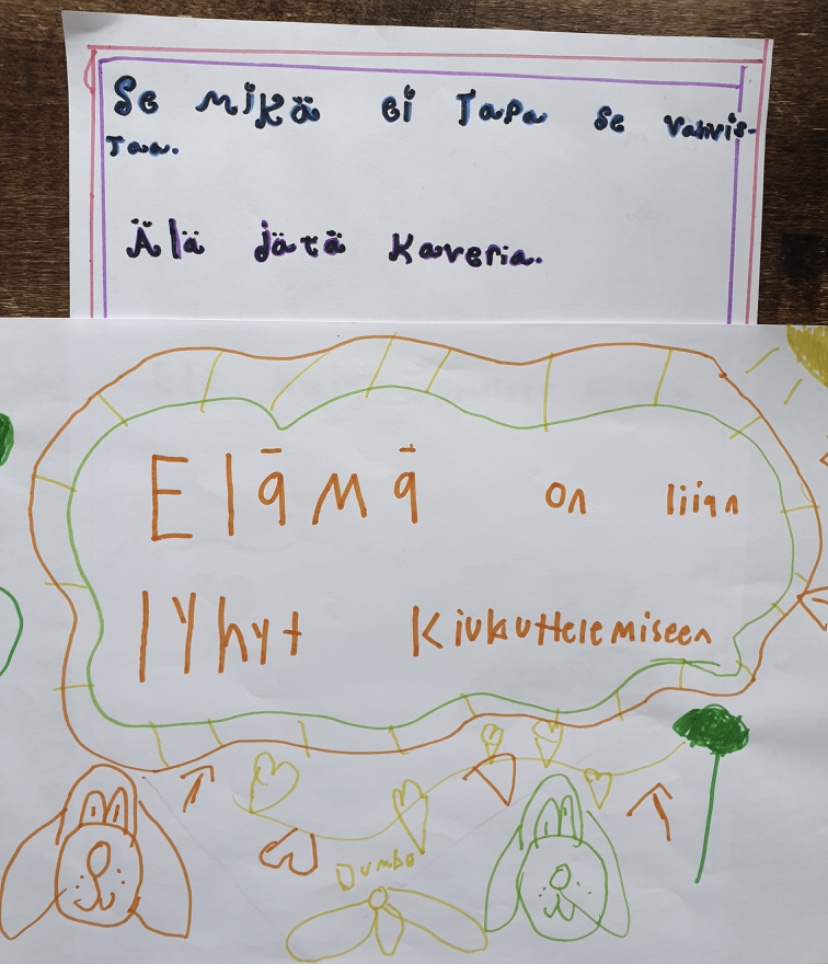 Se mikä ei Tapa se vahvis-
Taa.
Älä jätä Kaveria.
Elämä on liian
lyhyt Kiukuttelemiseen
Dumbo